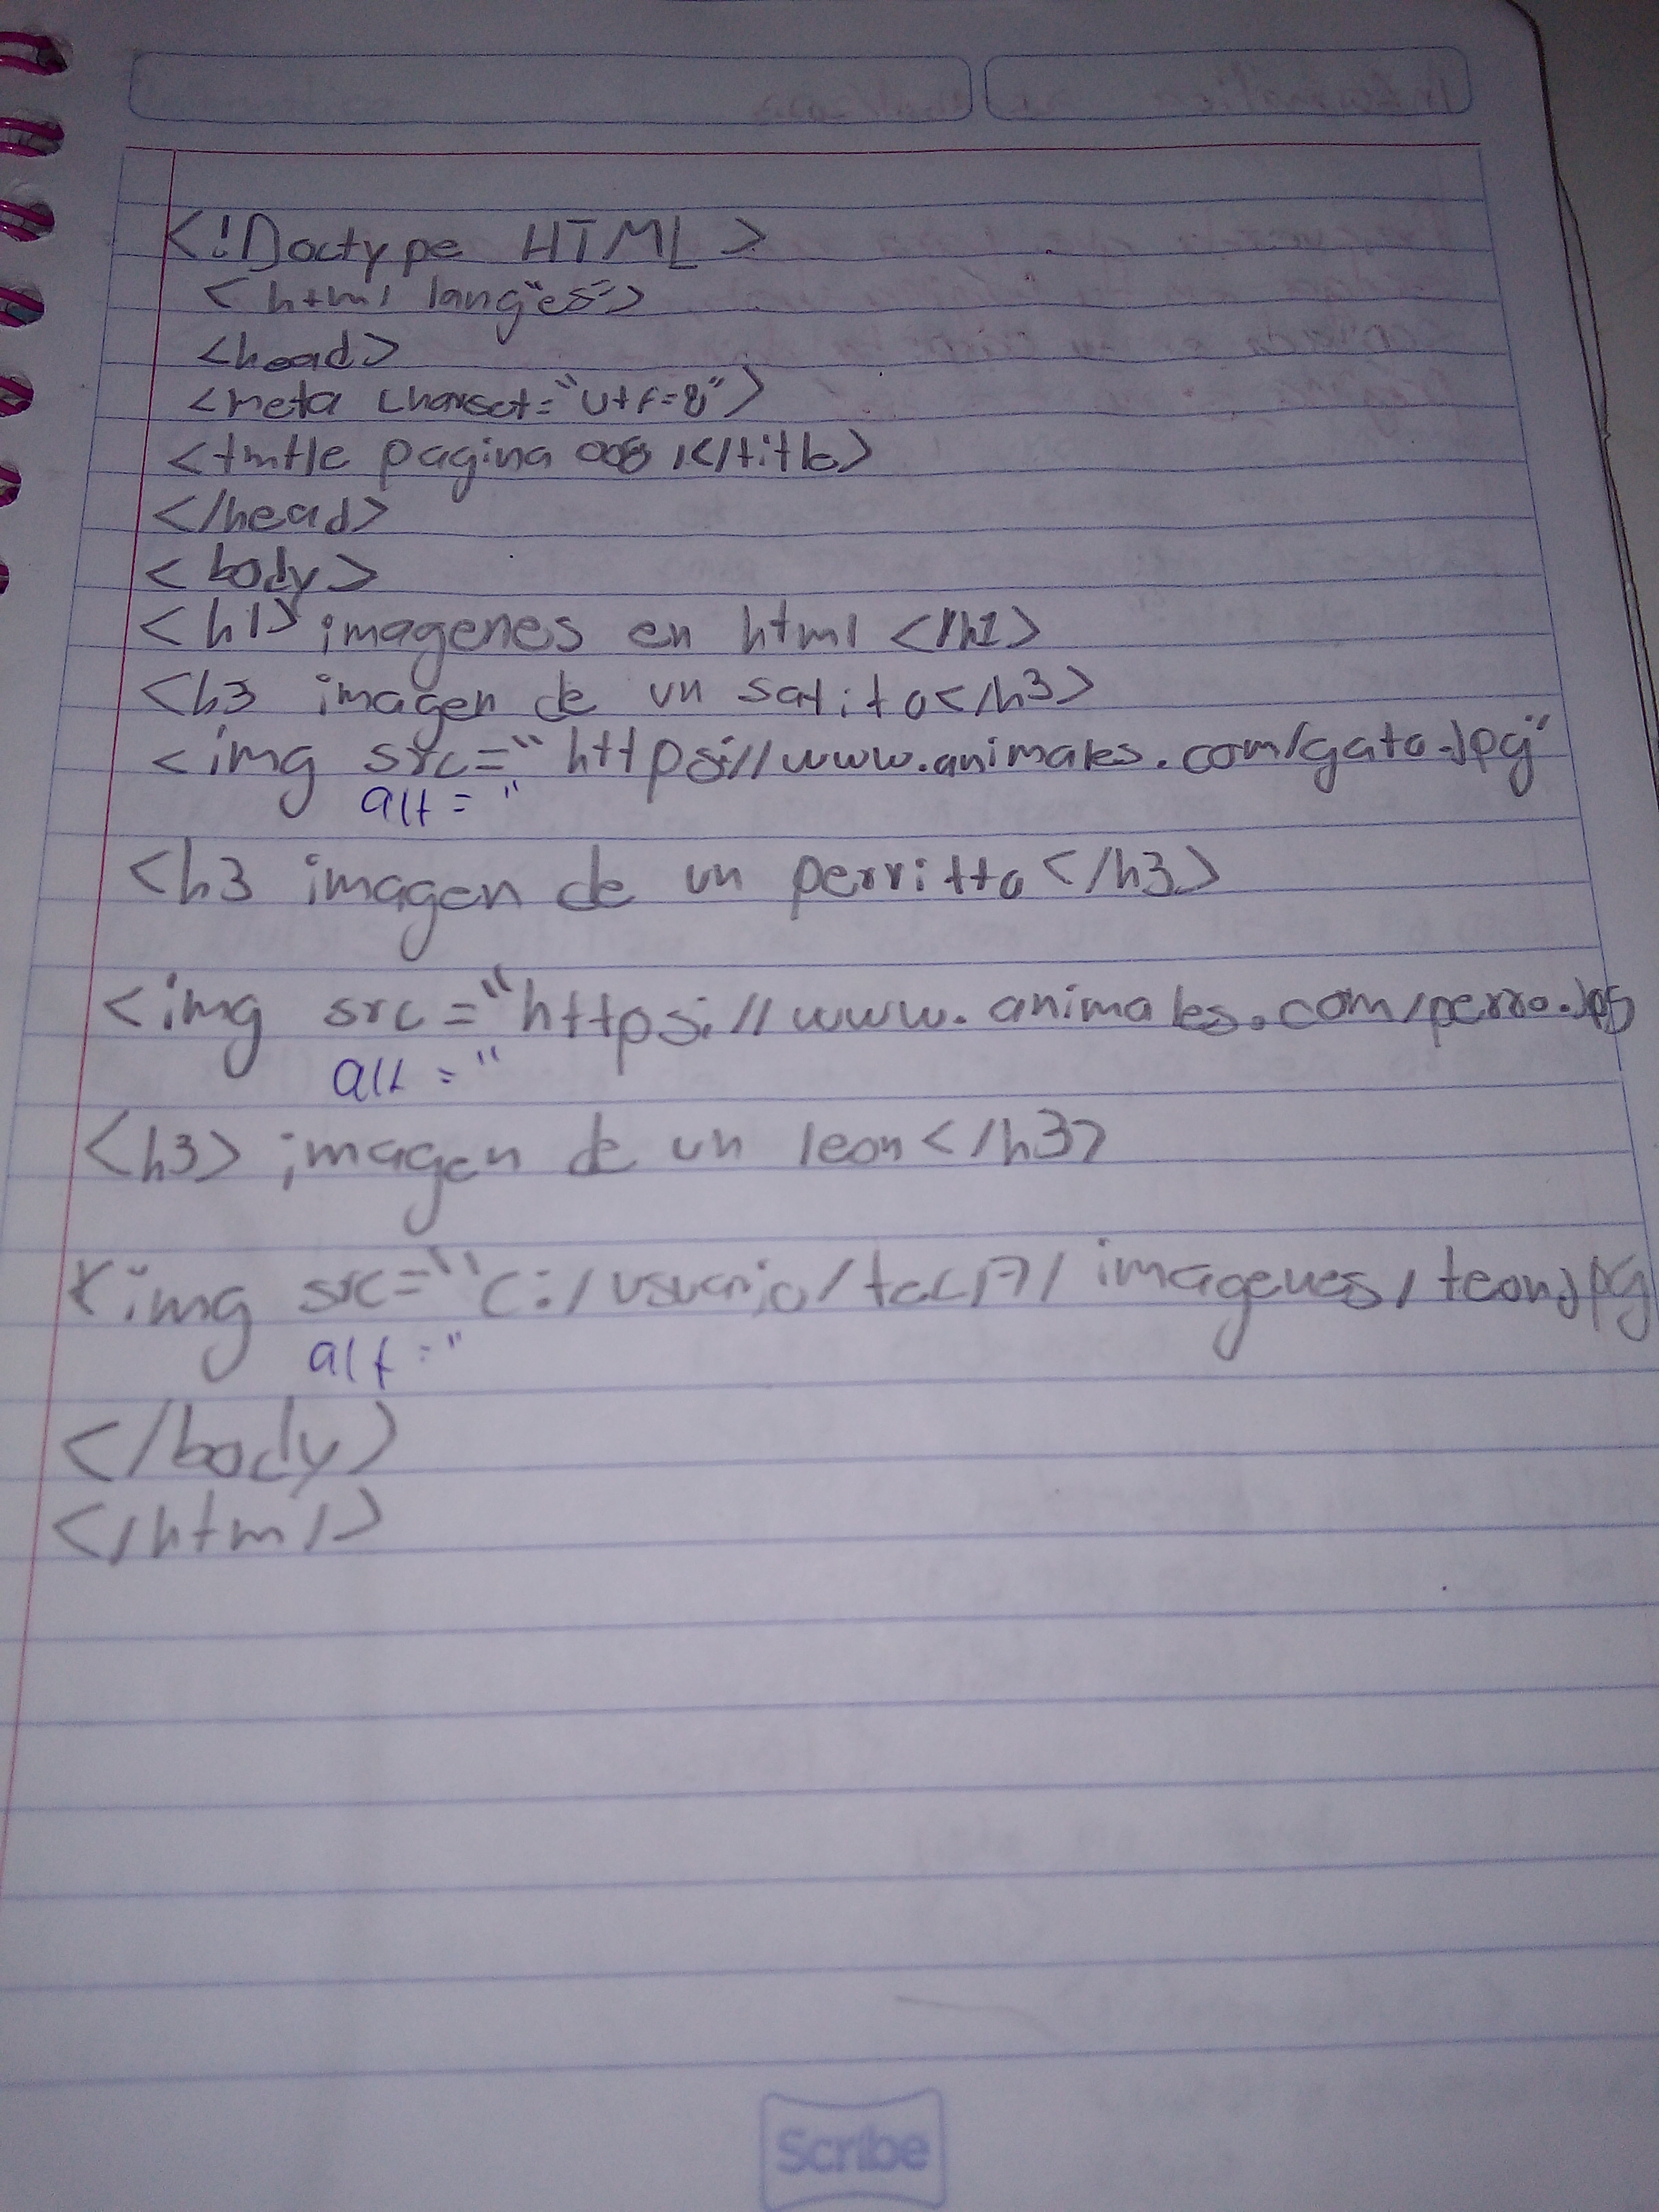 <!Doctype HTML>
<html lang"es">
<head>
<meta charset="utf=8">
<tmtle pagina 008 1</title>
</head>
<body>
<h1> imagenes en html </h1>
<h3 imagen de un satito</h3>
<img src="https://www.animales.com/gato.jpg"
alt="
<h3 imagen de un perritto</h3>
<img src="https://www.animales.com/perro.jpg
alt="
<h3> imagen de un leon</h3>
<img src="c:/usuario/ /imagenes/teon.jpg
alt="
</body>
</html>
Scribe